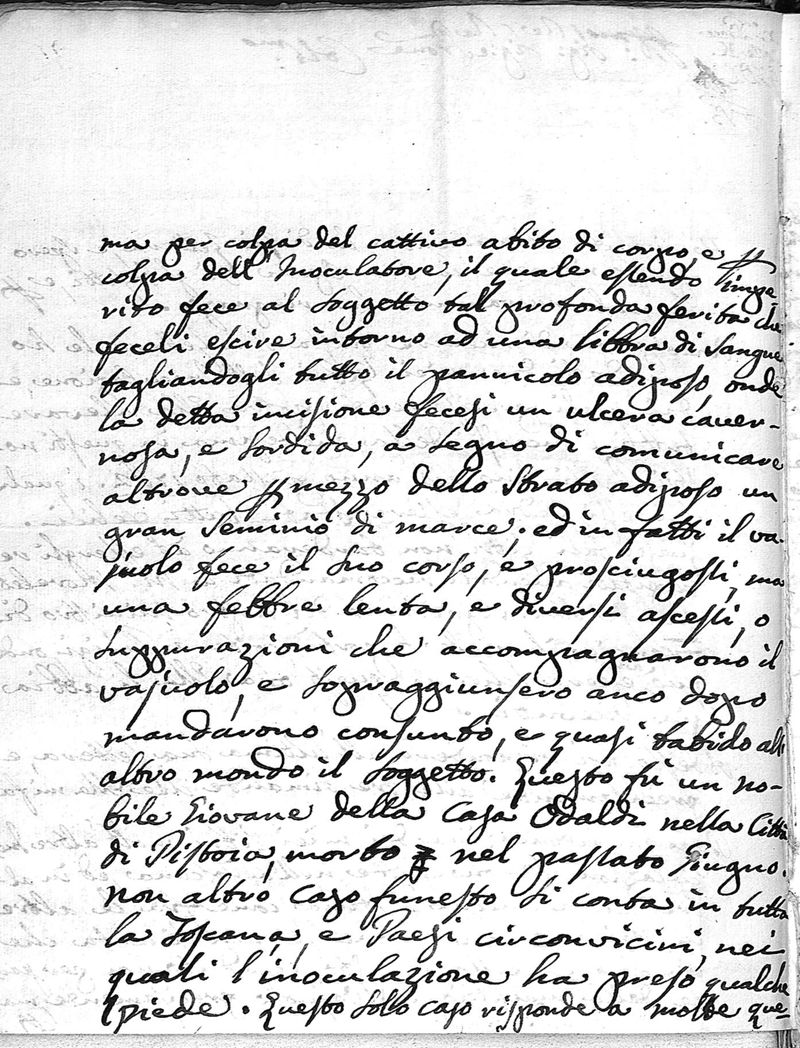 ma per colpa del cattivo abito di corpo, e p
colpa dell' Inoculatore, il quale essendo impe-
rito fece al soggetto tal profonda ferita che
feceli escire intorno ad una libbra di sangue
tagliandogli tutto il pannicolo adiposo, onde
la detta incisione fecesi un ulcera caver-
nosa, e sordida, a segno di comunicare
altrove p mezzo dello strato adiposo un
gran seminio di marce; ed in fatti il va-
juolo fece il suo corso, e prosciugossi, ma
una febbre lenta, e diversi ascessi, o
suppurazioni che accompagnarono il
vajuolo, e sopraggiunsero anco dopo
mandarono consunto, e quasi tabido all'
altro mondo il soggetto. Questo fù un no-
bile Giovane della Casa Odaldi nella Città
di Pistoia, morto nel passato Giugno.
non altro caso funesto si conta in tutta
la Toscana, e Paesi circonvicini, nei
quali l'inoculazione ha preso qualche
piede. Questo solo caso risponde a molte que-